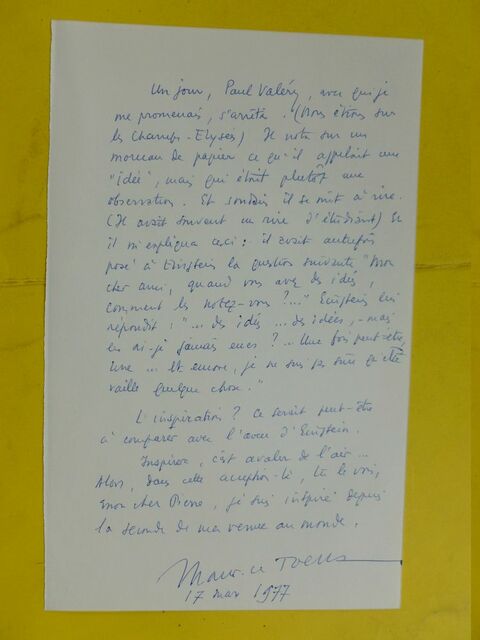 Un jour, Paul Valéry, avec qui je
me promenais, s'arrêta. (Nous étions sur
les Champs-Elysées) Il nota sur un
morceau de papier ce qu'il appelait une
"idée", mais qui était plutôt une
observation. Et soudain il se mit à rire.
(Il avait souvent un rire d'étudiant) Et
il m'expliqua ceci : il avait autrefois
posé à Einstein la question suivante "Mon
cher ami, quand vous avez des idées,
comment les notez-vous ?..." Einstein lui
répondit : "... des idées ... des idées, - mais
en ai-je jamais eues ? .. Une fois peut-être,
une ... et encore, je ne suis pas sûr qu'elle
vaille quelque chose."
L'inspiration ? Ce serait peut-être
à comparer avec l'aveu d'Einstein.
Inspirer, c'est avaler de l'air ...
Alors, dans cette acception-là, tu le vois,
mon cher Pierre, je suis inspiré depuis
la seconde de ma venue au monde.
Maurice Toesca
17 mars 1977